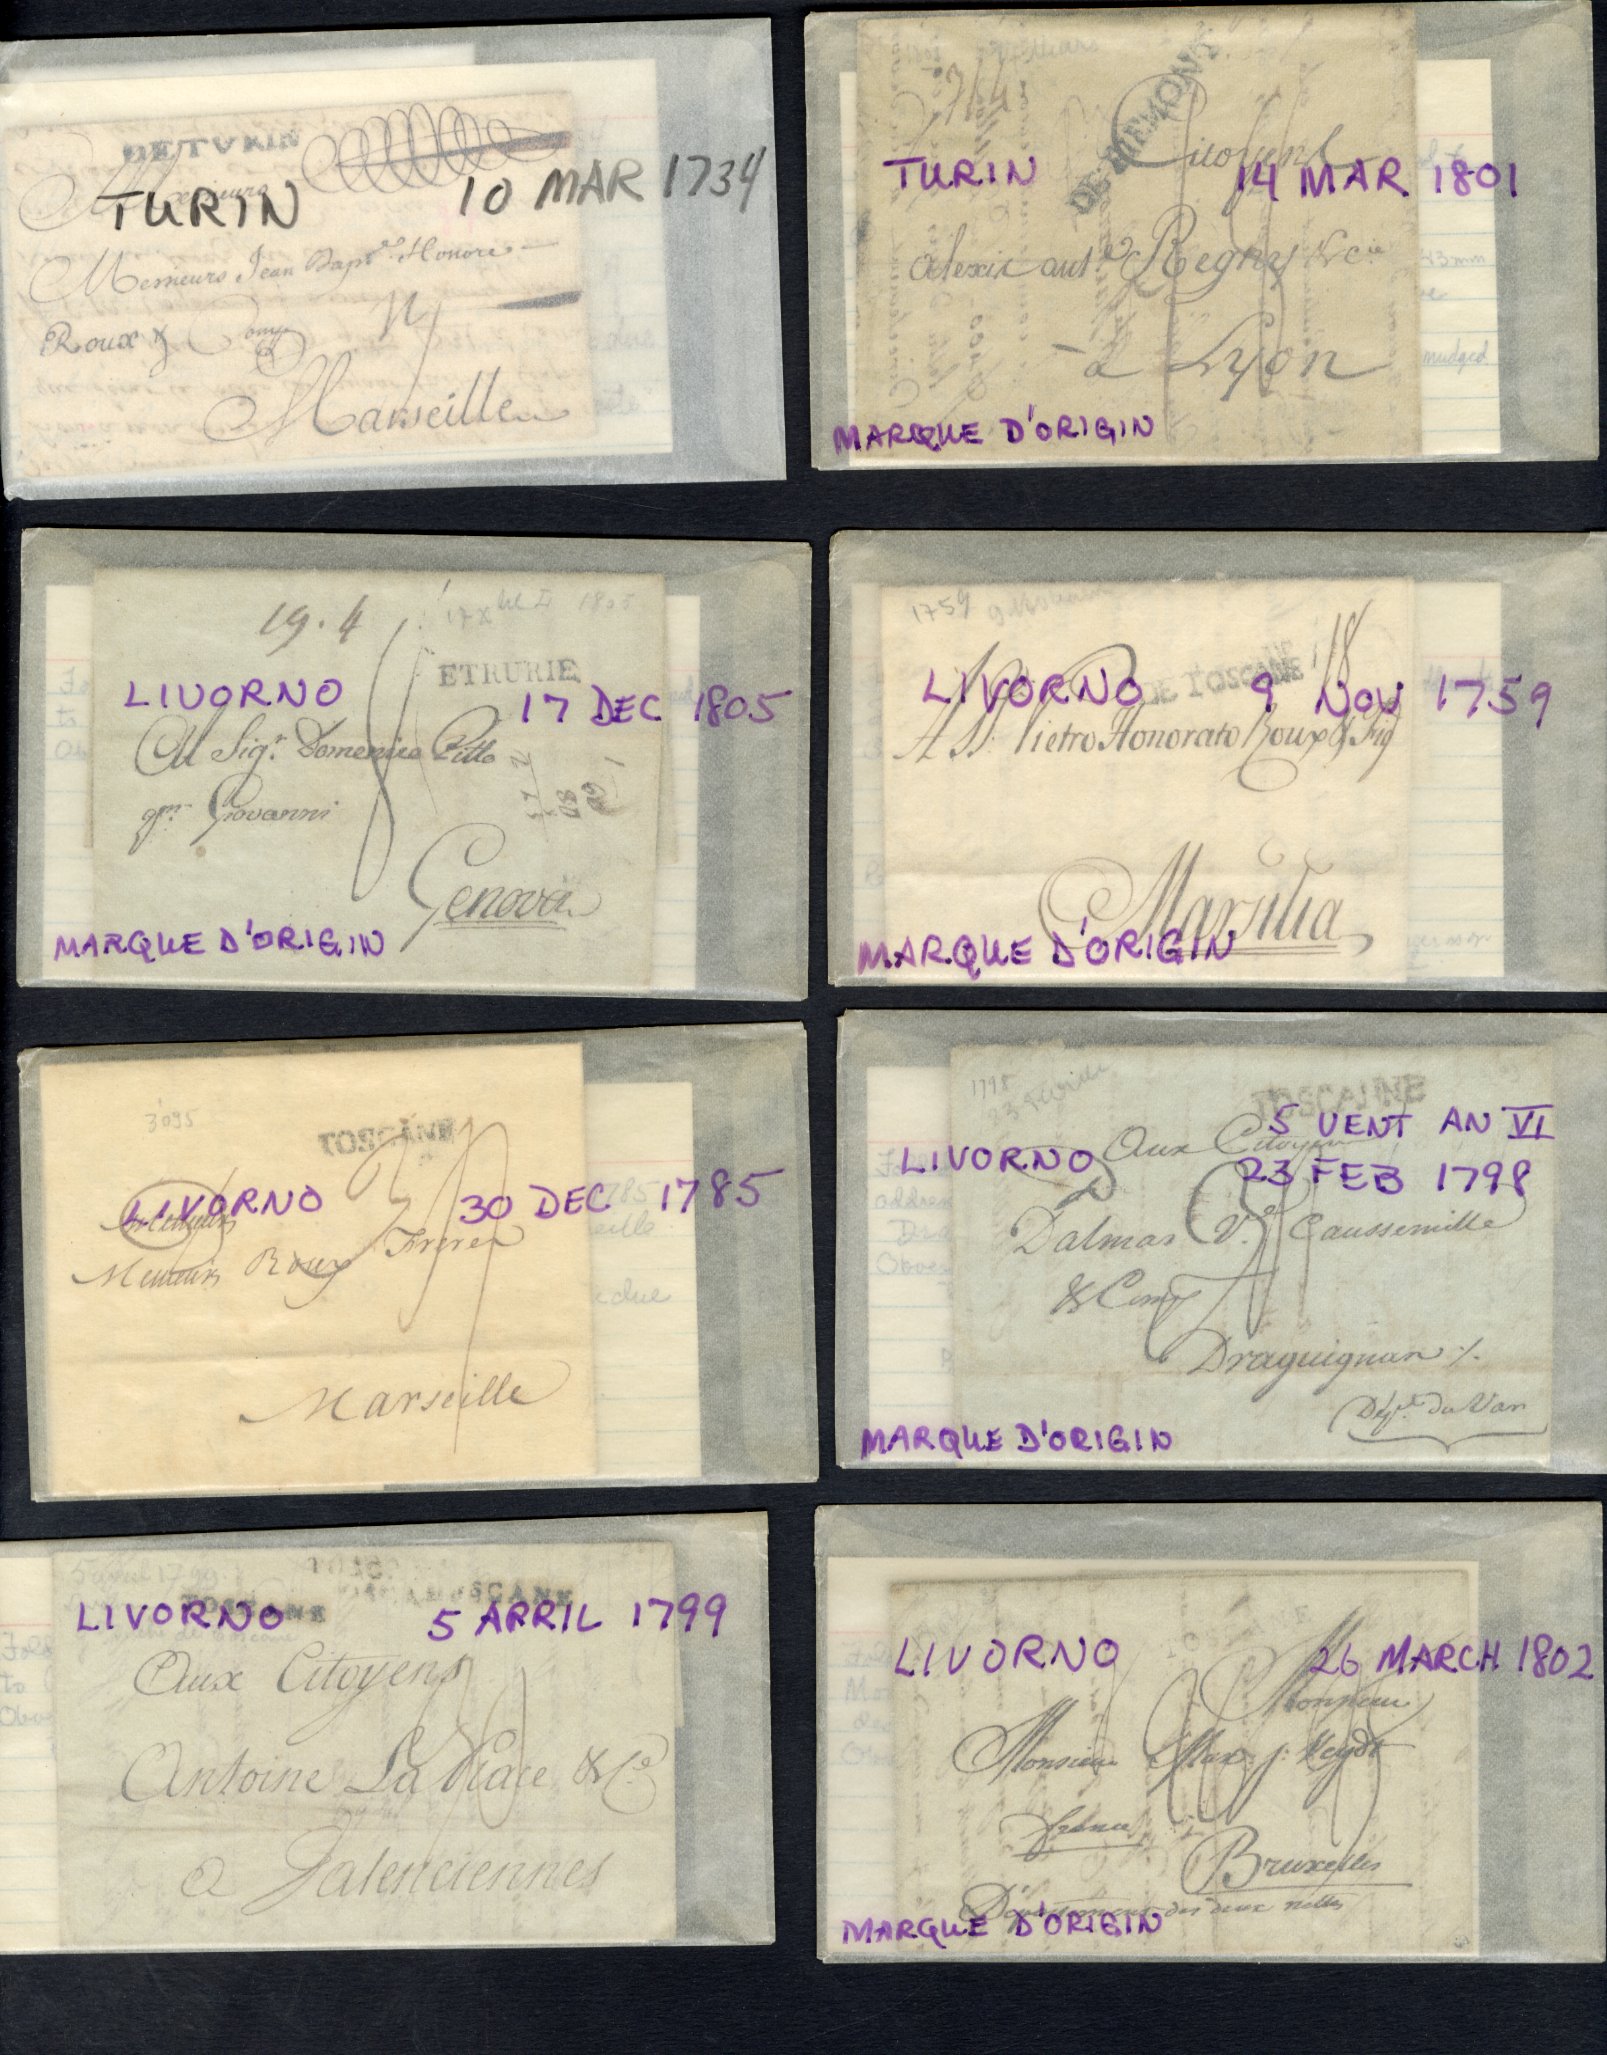 DE TURIN
TURIN 10 MAR 1734
Messieurs
Messieurs Jean Bapt. Honoré
Roux & Comp
Marseille
DE PIEMONT
Citoyens
TURIN 14 MAR 1801
Alexis ant Regny & Cie
23mm
à Lyon
MARQUE D'ORIGIN
19.4
1805
ETRURIE
LIVORNO 17 DEC 1805
Al Sigr. Domenico
qm. Giovanni
Genova
MARQUE D'ORIGIN
1759
18
DE TOSCANE
LIVORNO 9 NOV 1759
Pietro Honorato Roux & 
Marsilia
MARQUE D'ORIGIN
3095
TOSCANE
LIVORNO 30 DEC 1785
Messieurs
Messieurs Roux Freres
due
Marseille
1798
TOSCANE
5 VENT AN VI
Aux Citoyens
LIVORNO 23 FEB 1798
Dalmas Ve. Caussemille
& Comp
Draguignan ./.
Dept. du Var
MARQUE D'ORIGIN
5 avril 1799
TOSCANE TOSCANE
LIVORNO 5 APRIL 1799
Aux Citoyens
Antoine La Place & Co
a Valenciennes
LIVORNO 26 MARCH 1802
Monsieur
Monsieur
france
Bruxelles
Département des deux nethes
MARQUE D'ORIGIN